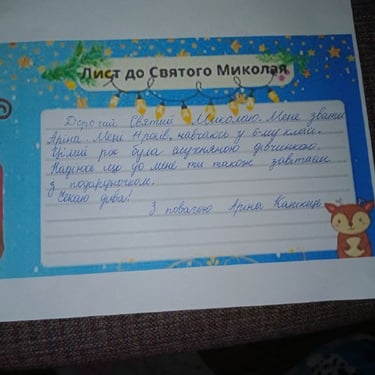 Лист до Святого Миколая
Дорогий Святий Миколаю. Мене звати
Аріна. Мені 11 років, навчаюсь у 6-му класі.
Цілий рік була слухняною дівчинкою.
Надіюсь що до мене ти також завітаєш
з подарунком.
Чекаю дива!
З повагою Аріна